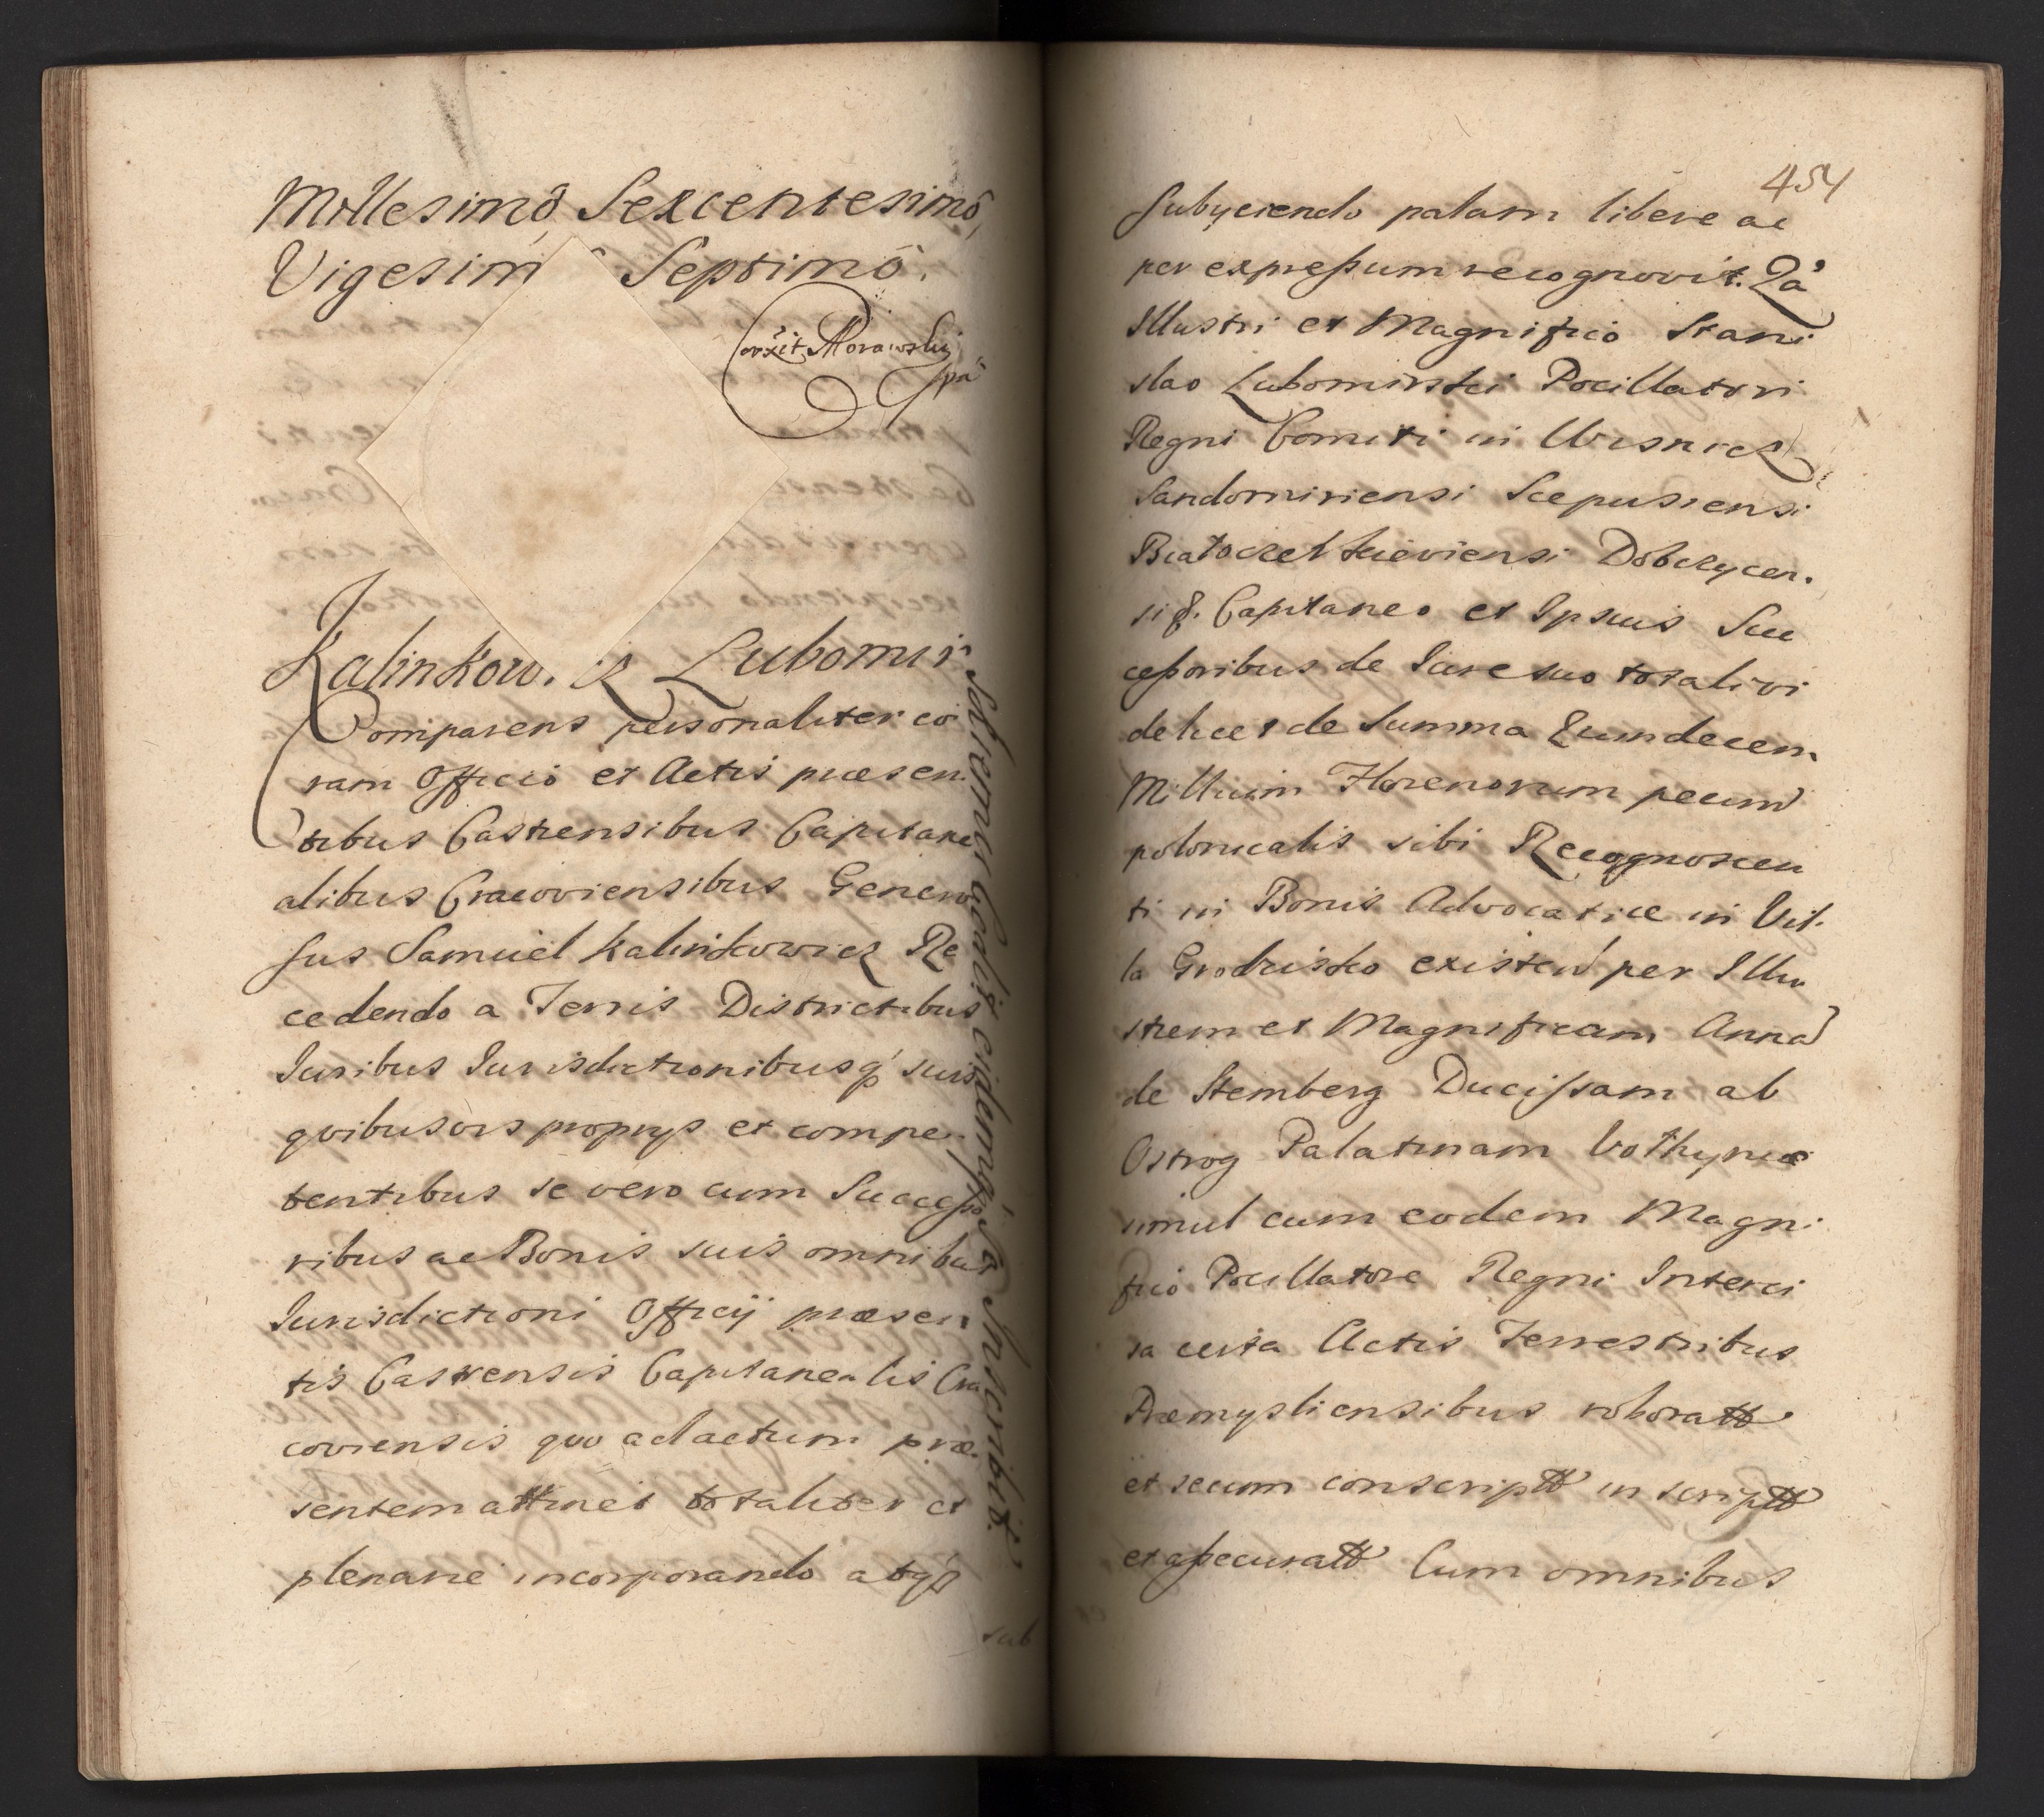 Millesimo Sexcentesimo
Vigesim Septimo.
Corxit Morawski
spa
Kalinkow. cz Lubomir
Comparens personaliter co
ram Officio et Actis præsen
tibus Castrensibus Capitane
alibus Cracoviensibus Genero
sus Samuel Kalinkowicz Re
cedendo a Terris Districtibus
Iuribus Iurisdictionibusq suis
qvibusvis proprijs et compe
tentibus se vero cum Successo
ribus ac Bonis suis omnibus
Iurisdictioni Officij præsen
tis Castrensis Capitanealis Cra
coviensis quo ad actum præ
sentem attinet totaliter et
plenarie incorporando atq
sub
Inscribit.
454
subijciendo palam libere ac
per expressum recognovit. Qa
Illustri et Magnifico Stani
slao Lubomirski Pocillatori
Regni Comiti in Wisnicz
Sandomiriensi Scepusiensi
Białoczerkieviensi Dobczycen.
si &. Capitaneo et Ipsius Suc
cessoribus de Iure suo totali vi
delicet de Summa Qumdecem
Millium Florenorum pecum
polonicalis sibi Recognoscen
ti in Bonis Advocatiæ in Vil.
la Grodzisko existen per Illu
strem et Magnificam Anna
de Stemberg Ducissam ab
Ostrog Palatinam Vołhyniæ
simul cum eodem Magni
fico Pocillatore Regni Interci
sa certa Actis Terrestribus
Præmysliensibus roboratt
et secum conscriptt inscriptt
et assecuratt Cum omnibus